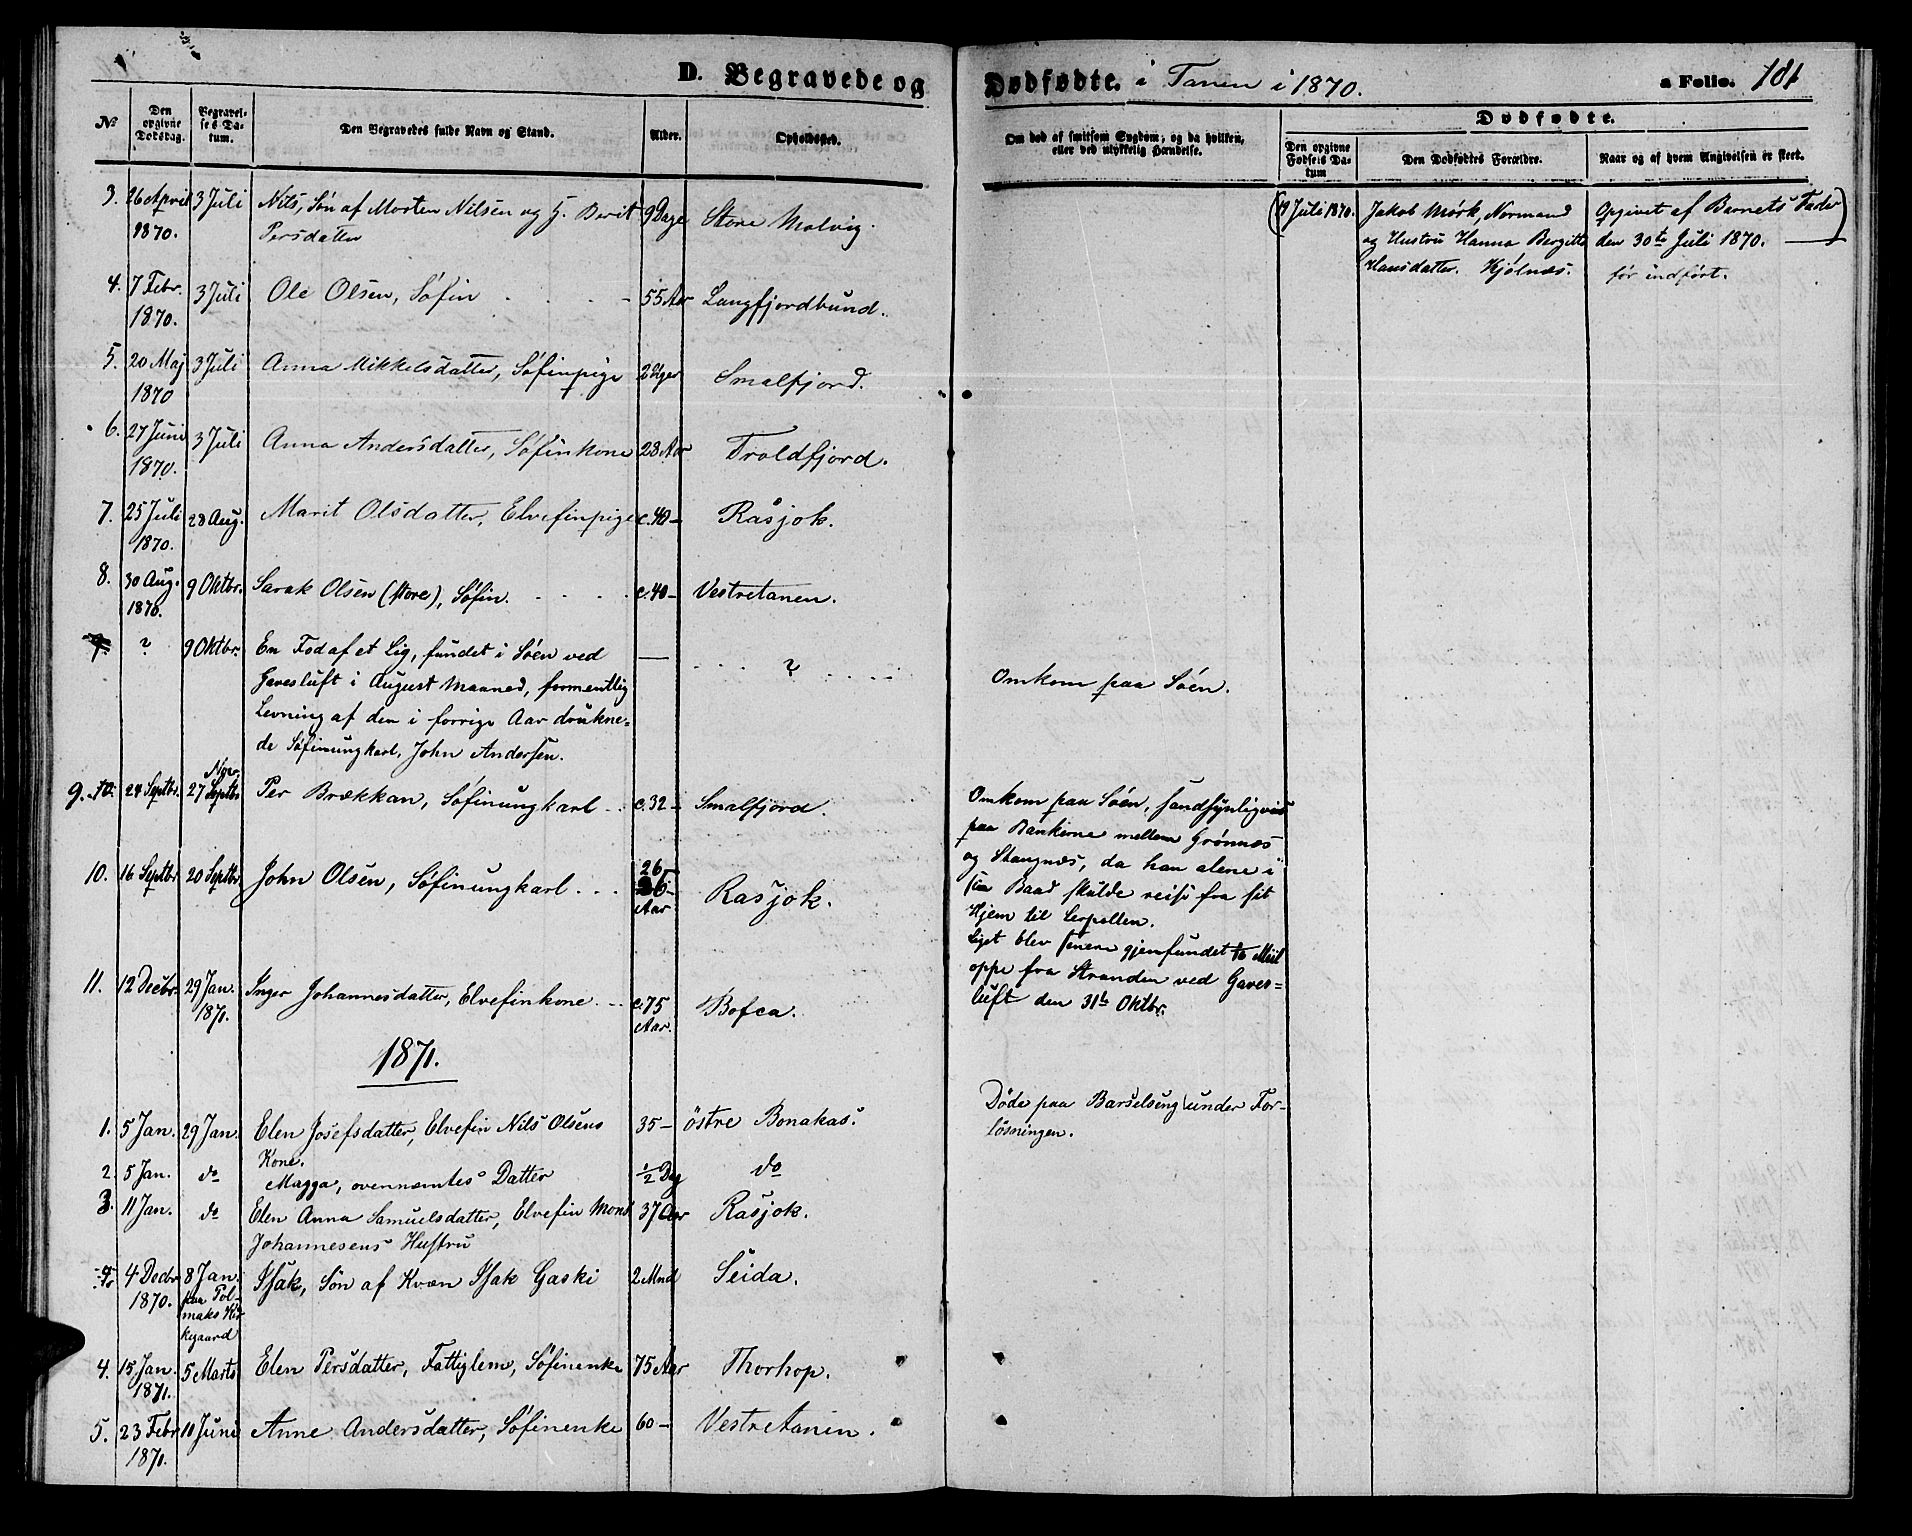 D. Begravede og
Dødfødte. i Tanen i 1870.
a Folio. 181
No
Den opgivne Dødsdag.
Begravelses Datum.
Den Begravedes fulde Navn og Stand.
Alder.
Opholdssted.
Om død af smitsom Sygdom, og da hvilken, eller ved ulykkelig Hændelse.
Dødfødte.
Den opgivne Fødsels Datum
Den Dødfødtes Forældre.
Naar og af hvem Angivelsen er skeet.
3. 26 April 3 Juli Nils, Søn af Morten Nilsen og H. Berit 9 Dage Store Molvig.
1870. Persdatter
(19 Juli 1870. Jakob Mørk, Normand Opgivet af Barnets Fader)
og Hustru Hanna Bergitte den 30te Juli 1870.
Hansdatter. Hjølnæs. før indført.
4. 7 Febr. 3 Juli Ole Olsen, Søfin 55 Aar Langfjordbund.
1870.
5. 20 Maj 3 Juli Anna Mikkelsdatter, Søfinpige 2 Uger Smalfjord.
1870
6. 27 Juni 3 Juli Anna Andersdatter, Søfinkone 23 Aar Troldfjord.
1870.
7. 25 Juli 28 Aug. Marit Olsdatter, Elvefinpige c. 40 – Rasjok.
1870.
8. 30 Aug. 9 Oktbr. Sarak Olsen (store), Søfin. c. 40 – Vestretanen.
1870.
9. ? 9 Oktbr. En Fod af et Lig, fundet i Søen ved — ?
Gavesluft i August Maaned, formentlig
Levning af den i forrige Aar drukne-
de Søfinungkarl, John Andersen.
Omkom paa Søen.
Novr.
9. 10. 24 Septbr. 27 Septbr Per Brækkan, Søfinungkarl c. 32 – Smalfjord.
Omkom paa Søen, sandsynligvis
paa Bankerne mellem Grønnæs
og Stangnæs, da han alene i
sin Baad skulde reise fra sit
Hjem til Lerpollen.
Liget blev senere gjenfundet ½ Miil
oppe fra Stranden ved Gaves=
luft den 31te Oktbr.
10. 16 Septbr. 20 Septbr. John Olsen, Søfinungkarl 26 Aar Rasjok.
11. 12 Decbr. 29 Jan. Inger Johannesdatter, Elvefinkone c. 75 Bofca.
1871. Aar.
1871.
1. 5 Jan. 29 Jan. Elen Josefsdatter, Elvefin Nils Olsens 35 – østre Bonakas.
Kone.
Døde paa Barselseng under For-
løsningen.
2. 5 Jan. do Magga, ovennæmtes Datter ½ Dag do
3. 11 Jan. do Elen Anna Samuelsdatter, Elvefin Mons 37 Aar Rasjok.
Johannesens Hustru
4. 4 Decbr 8 Jan. Isak, Søn af Kvæn Isak Gaski 2 Mnd Seida.
1870. paa Pol-
maks Kir-
kegaard
4. 15 Jan. 5 Marts Elen Persdatter, Fattiglem, Søfinenke 75 Aar Thorhop.
1871.
5. 23 Febr 11 Juni Anne Andersdatter, Søfinenke 60 – Vestretanen.
1871.